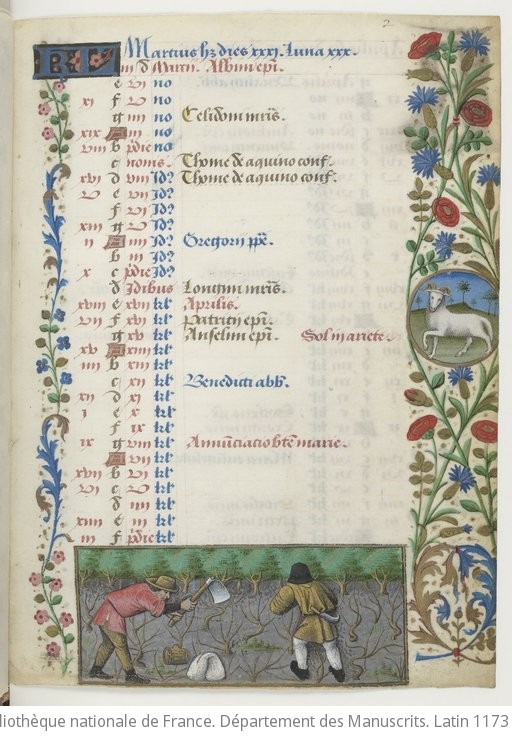 2
KL Martius hz dies xxxi. Luna xxx.
iii d Martii. Albini epi.
e vi no
xi f v no
g iiii no Celidoni mris.
xix A iii no
viii b pdie no
c nonis. Thome de aquino conf.
xvi d viii Id9 Thome de aquino conf.
v e vii Id9
f vi Id9
xiii g v Id9
ii A iiii Id9 Gregorii ppe.
b iii Id9
x c pdie Id9
d Idibus Longini mris.
xviii e xvii kl Aprilis.
vii f xvi kl Patricii epi.
g xv kl Anselmi epi. Sol in ariete.
xv A xiiii kl
iiii b xiii kl
c xii kl Benedicti abb.
xii d xi kl
i e x kl
f ix kl
ix g viii kl Annunciacio bte marie.
A vii kl
xvii b vi kl
vi c v kl
d iiii kl
xiiii e iii kl
iii f pdie kl
liothèque nationale de France. Département des Manuscrits. Latin 1173